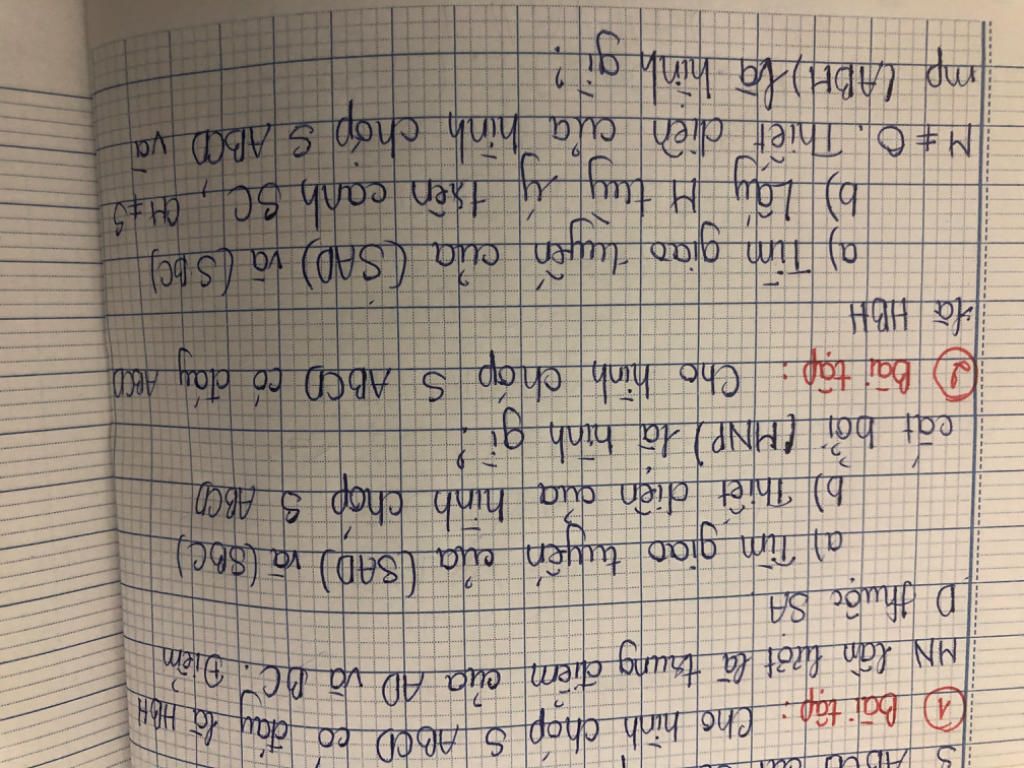 S ABCD
① Bài tập: Cho hình chóp S ABCD có đáy là HBH
MN lần lượt là trung điểm của AD và BC. Điểm
D thuộc SA
a) Tìm giao tuyến của (SAD) và (SBC)
b) Thiết diện của hình chóp S ABCD
cắt bởi (MNP) là hình gì?
② Bài tập: Cho hình chóp S ABCD có đáy ABCD
là HBH
a) Tìm giao tuyến của (SAD) và (SBC)
b) Lấy M tuỳ ý trên cạnh SC, M ≠ S
M ≠ C. Thiết diện của hình chóp S ABCD và
mp (ABM) là hình gì?